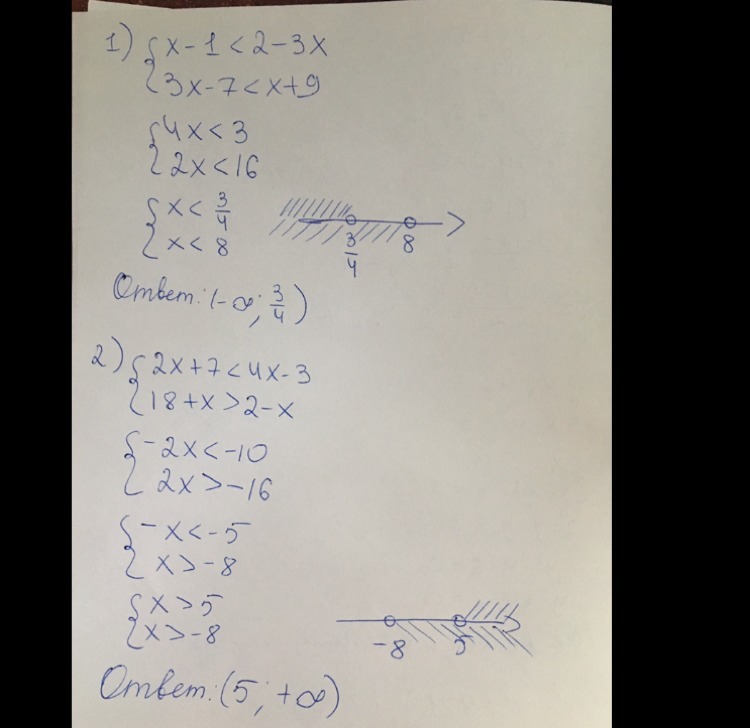 1) { x - 1 < 2 - 3x
{ 3x - 7 < x + 9
{ 4x < 3
{ 2x < 16
{ x < 3/4
{ x < 8
3/4 8
Ответ: (-∞; 3/4)
2) { 2x + 7 < 4x - 3
{ 18 + x > 2 - x
{ -2x < -10
{ 2x > -16
{ -x < -5
{ x > -8
{ x > 5
{ x > -8
-8 5
Ответ: (5; +∞)